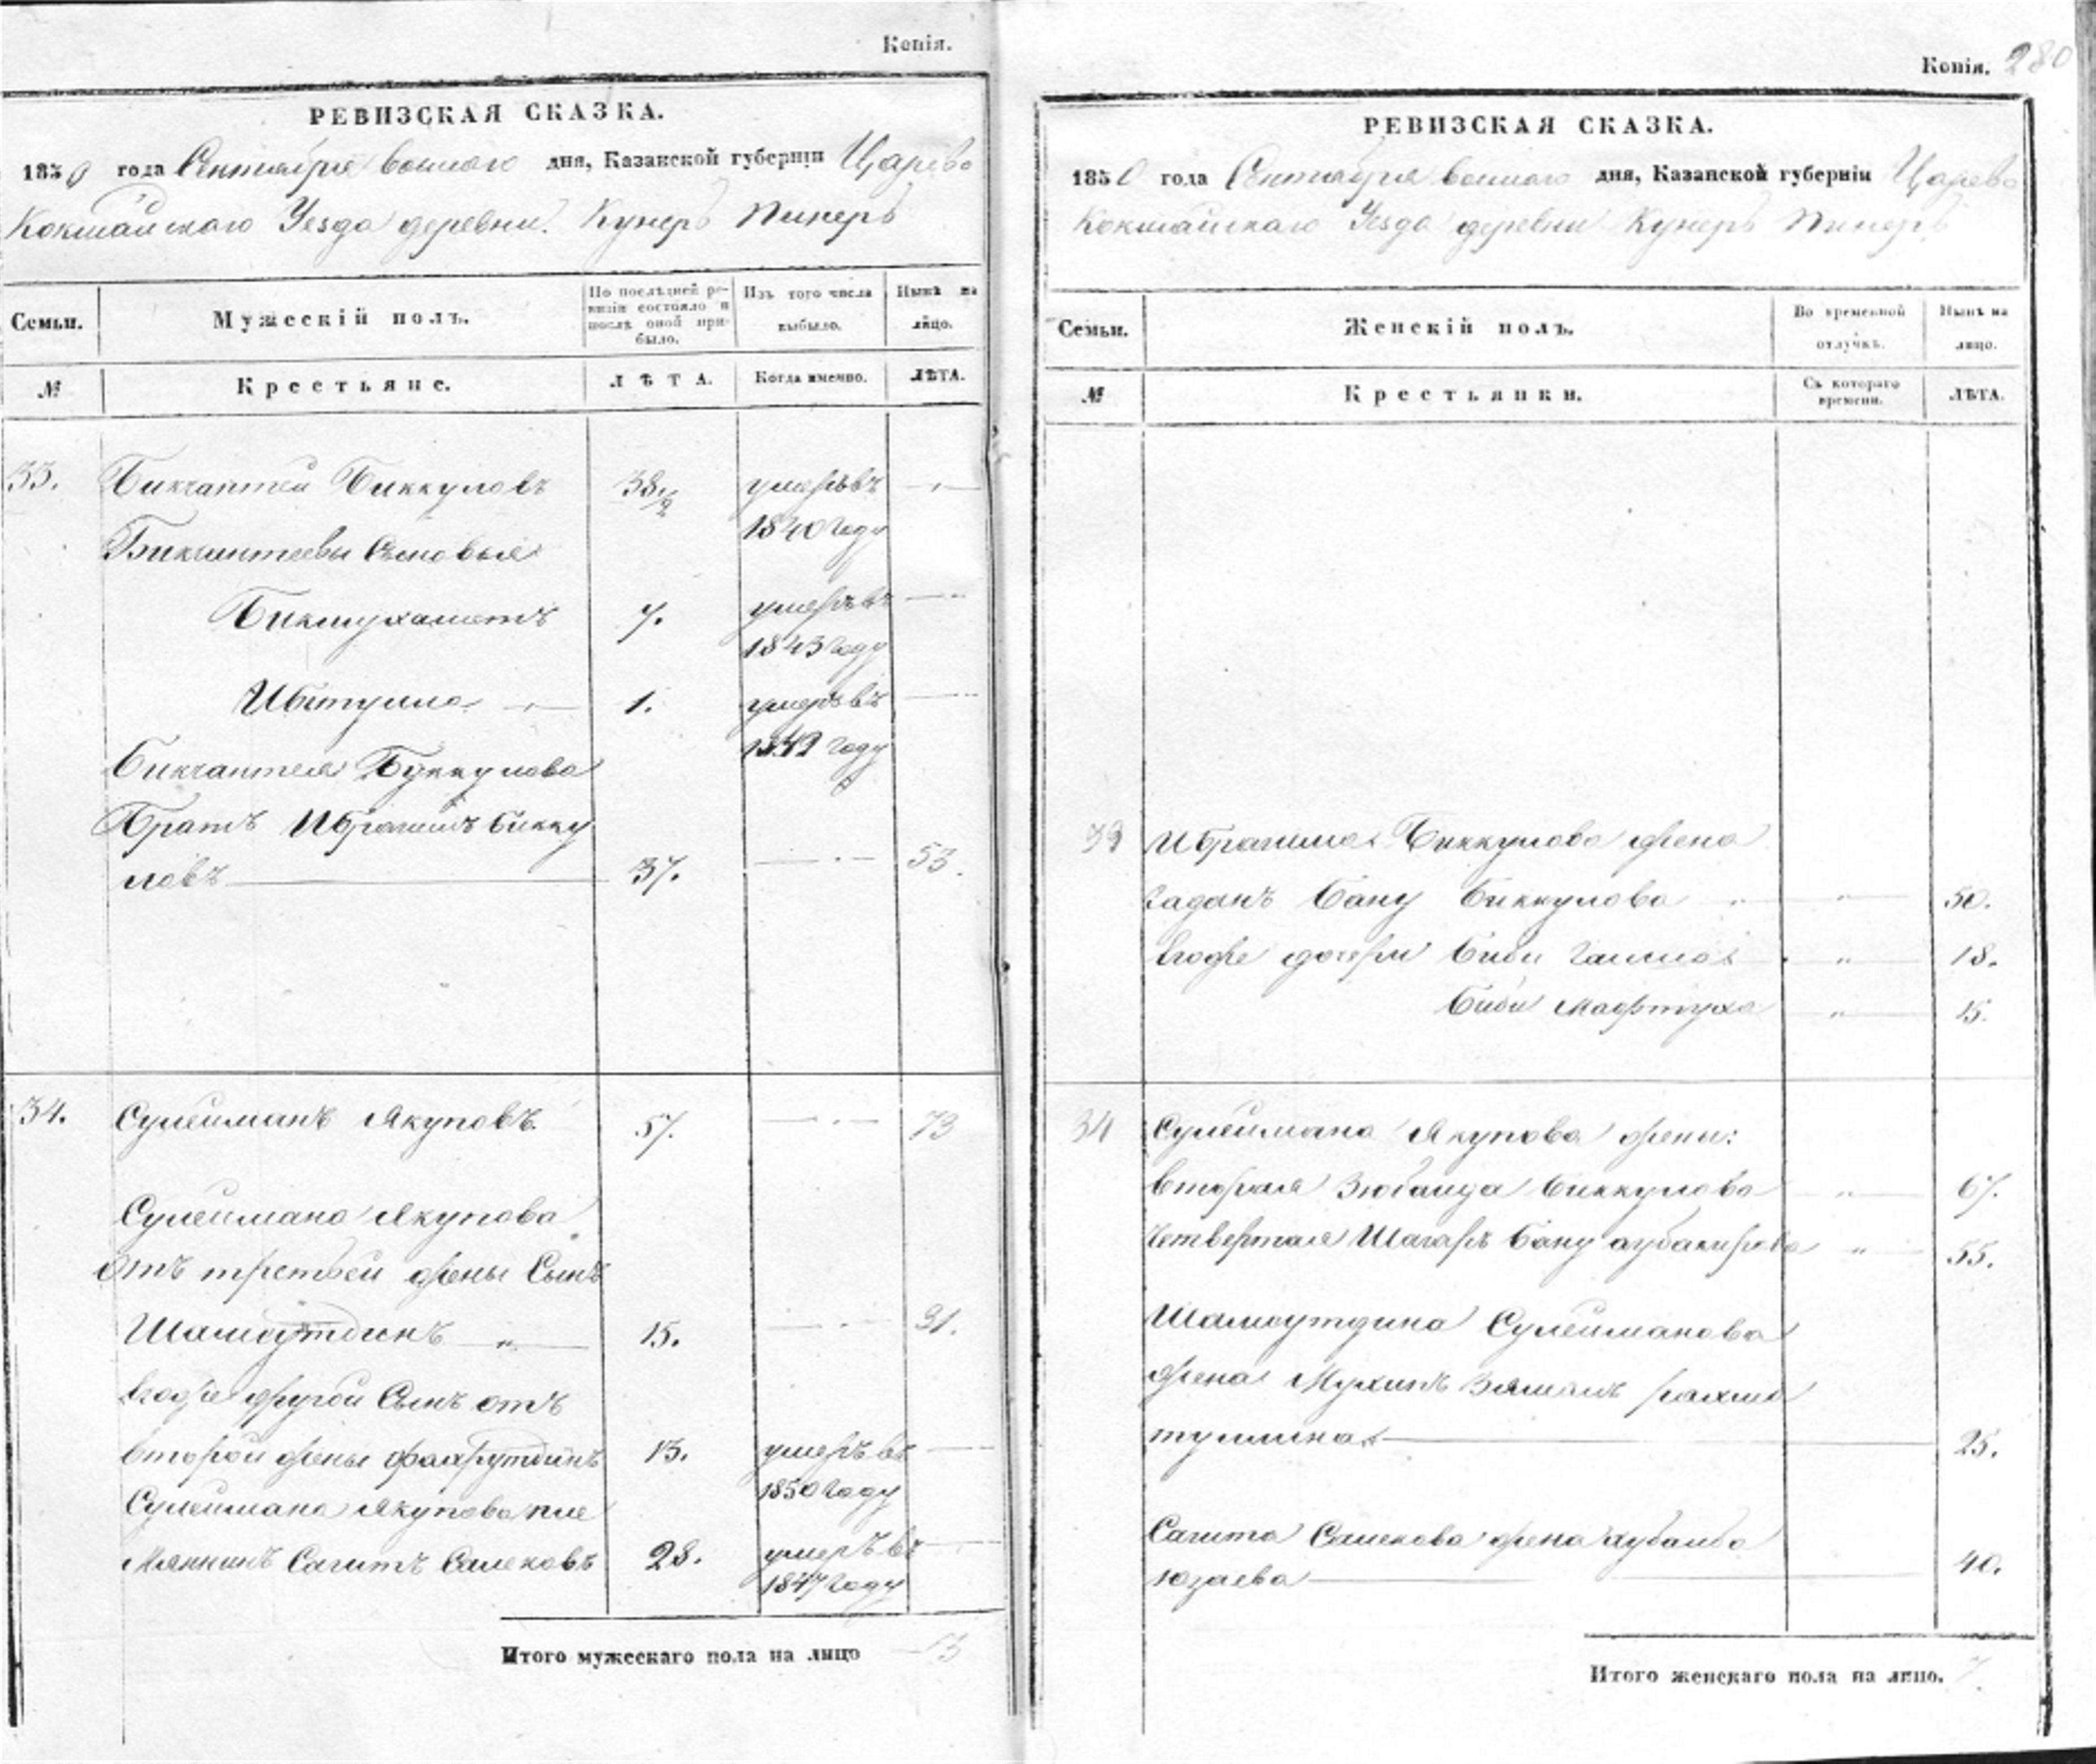 Копія.
РЕВИЗСКАЯ СКАЗКА.
1850 года Сентября дня, Казанской губерніи Царево
Кокшайскаго Уезда деревни Кунеръ Пинеръ
Семьи. Мужескій полъ. По послѣдней ревизіи состояло и послѣ оной прибыло. Изъ того числа выбыло. Нынѣ на лицо.
№ Крестьяне. ЛѢТА. Когда именно. ЛѢТА.
33. Бикчантей Биккуловъ 38 1/2 умеръ въ
1840 году
Бикчинтеевы Сыновья
Бикмухаметъ 7. умеръ въ
1843 году
1. умеръ въ
году
Бикчантея Буккулова
Братъ Ибрагимъ Бикку
ловъ 37. 53.
34. Сулейманъ Якуповъ 57. 73
Сулеймана Якупова
отъ третьей жены Сынъ
Шамсутдинъ „ 15. 31.
Егоже другой Сынъ отъ
второй жены Фахрутдинъ 13. умеръ въ
1850 году
Сулеймана Якупова пле
мянникъ Сагитъ Салековъ 28. умеръ въ
1847 году
Итого мужескаго пола на лицо 3
Копія. 280
РЕВИЗСКАЯ СКАЗКА.
1850 года Сентября дня, Казанской губерніи Царево
Кокшайскаго Уезда деревни Кунеръ Пинеръ
Семьи. Женскій полъ. Во временной отлучкѣ. Нынѣ на лицо.
№ Крестьянки. Съ котораго времени. ЛѢТА.
33 Ибрагима Биккулова жена
Бану Биккулова „ 50.
Егоже дочери Биби „ 18.
Биби Мафтуха „ 15.
34 Сулеймана Якупова жены:
вторая Зюбаида Биккулова „ 67.
четвертая Шагаръ Бану аубакирова „ 55.
Шамсутдина Сулейманова
жена Зямалъ рахма
туллина 25.
Сагита Салекова жена Хубанбa
юзаева 40.
Итого женскаго пола на лицо. 7.